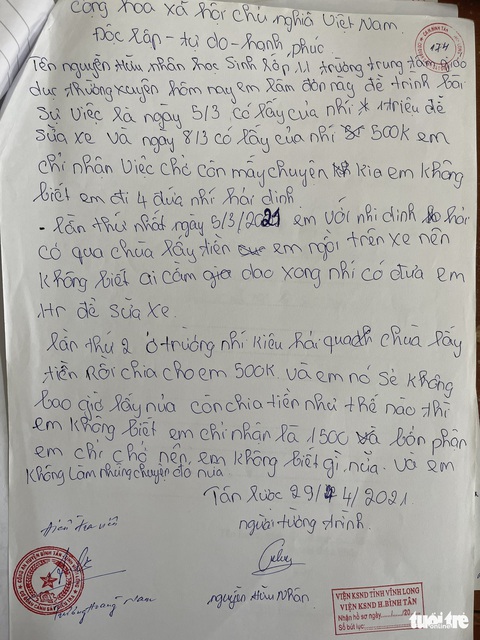 cộng hoa xã hội chủ nghĩa Việt Nam.
Độc lập - tự do - hạnh phúc
Tên nguyễn Hữu nhân học Sinh lớp 11 trường trung tâm giáo
dục thường xuyên hôm nay em làm đơn này để trình bài
Sự Việc là ngày 5/3 có lấy của nhí 1 triệu để
sửa xe và ngày 8/3 có lấy của nhí 500K em
chỉ nhận Việc chở còn mấy chuyện kia em không
biết em đi 4 đứa nhí hải dinh
- lần thứ nhất ngày 5/3/2021 em với nhi dinh hải
có qua chùa lấy tiền em ngồi trên xe nên
không biết ai cầm dao xong nhí có đưa em
1tr để sửa Xe.
lần thứ 2 ở trường nhí kiêu hải qua chùa lấy
tiền Rồi chia cho em 500K và em nó sẽ không
bao giờ lấy nửa còn chia tiền như thế nào thì
em không biết em chỉ nhận là 1500 và bổn phận
em chỉ chở nên em không biết gì nửa. và em
không làm những chuyện đó nửa
Tân lược 29/4/2021
Điều tra viên
người tường trình.
Trương Hoàng Nam
nguyễn Hữu Nhân
174
VIỆN KSND TỈNH VĨNH LONG
VIỆN KSND H.BÌNH TÂN
Nhận hồ sơ ngày
Số bút lục:
tuổi trẻ